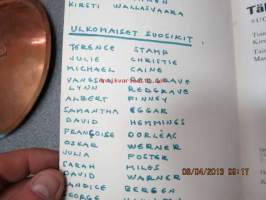 KIRSTI WALLASVAARA
ULKOMAISET SUOSIKIT
TERENCE STAMP
JULIE CHRISTIE
MICHAEL CAINE
VANESSA REDGRAVE
LYNN REDGRAVE
ALBERT FINNEY
SAMANTHA EGGAR
DAVID HEMMINGS
FRANÇOISE DORLÉAC
OSKAR WERNER
JULIA FOSTER
SARAH MILES
DAVID WARNER
CANDICE BERGEN
GEORGE
08/04/2013 09:17